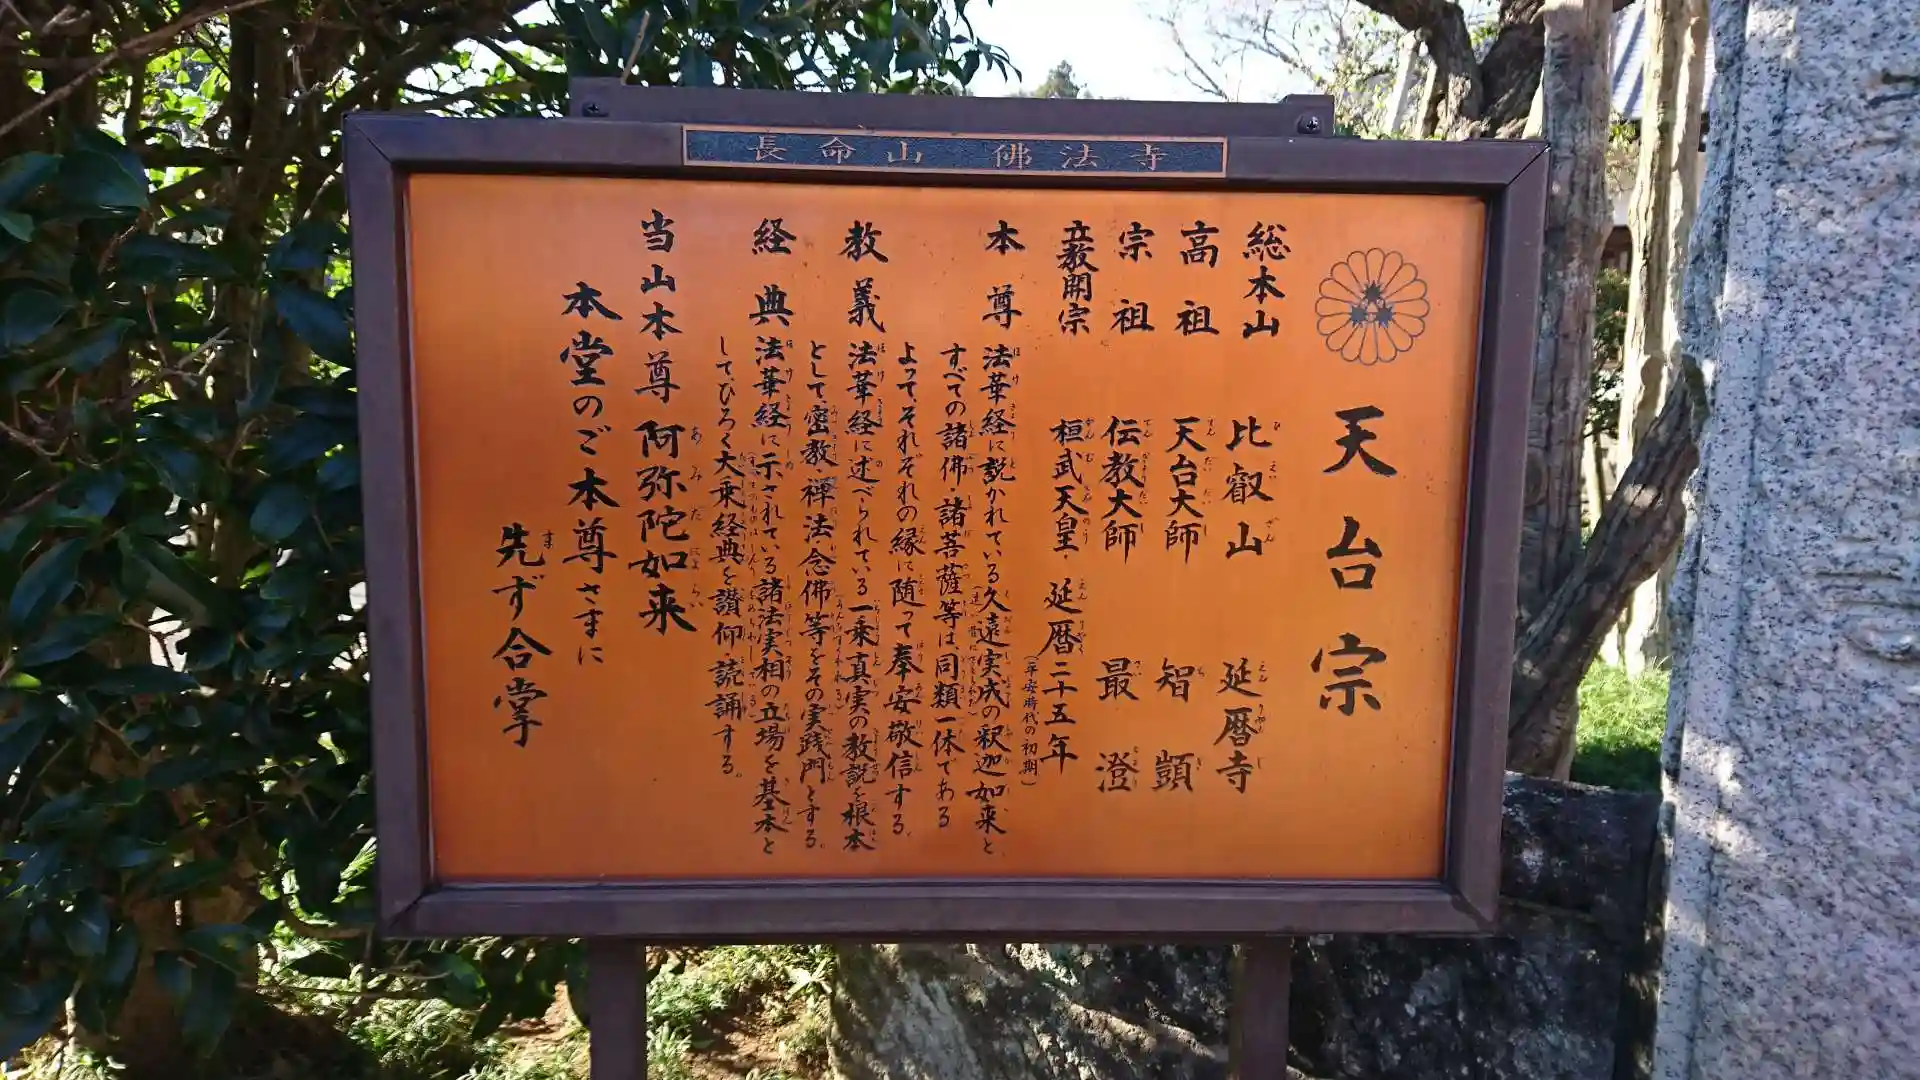 長命山 佛法寺
天台宗
総本山 比叡山 延暦寺
高祖 天台大師 智顗
宗祖 伝教大師 最澄
立教開宗 桓武天皇・延暦二十五年
(平安時代の初期)
本尊 法華経に説かれている久遠実成の釈迦如来と
すべての諸佛・諸菩薩等は、同類一体である
よって、それぞれの縁に随って奉安敬信する。
教義 法華経に述べられている一乗真実の教説を根本
として、密教・禅法・念佛等をその実践門とする。
経典 法華経に示されている諸法実相の立場を基本と
してひろく大乗経典を讃仰読誦する。
当山本尊 阿弥陀如来
本堂のご本尊さまに
先ず合掌